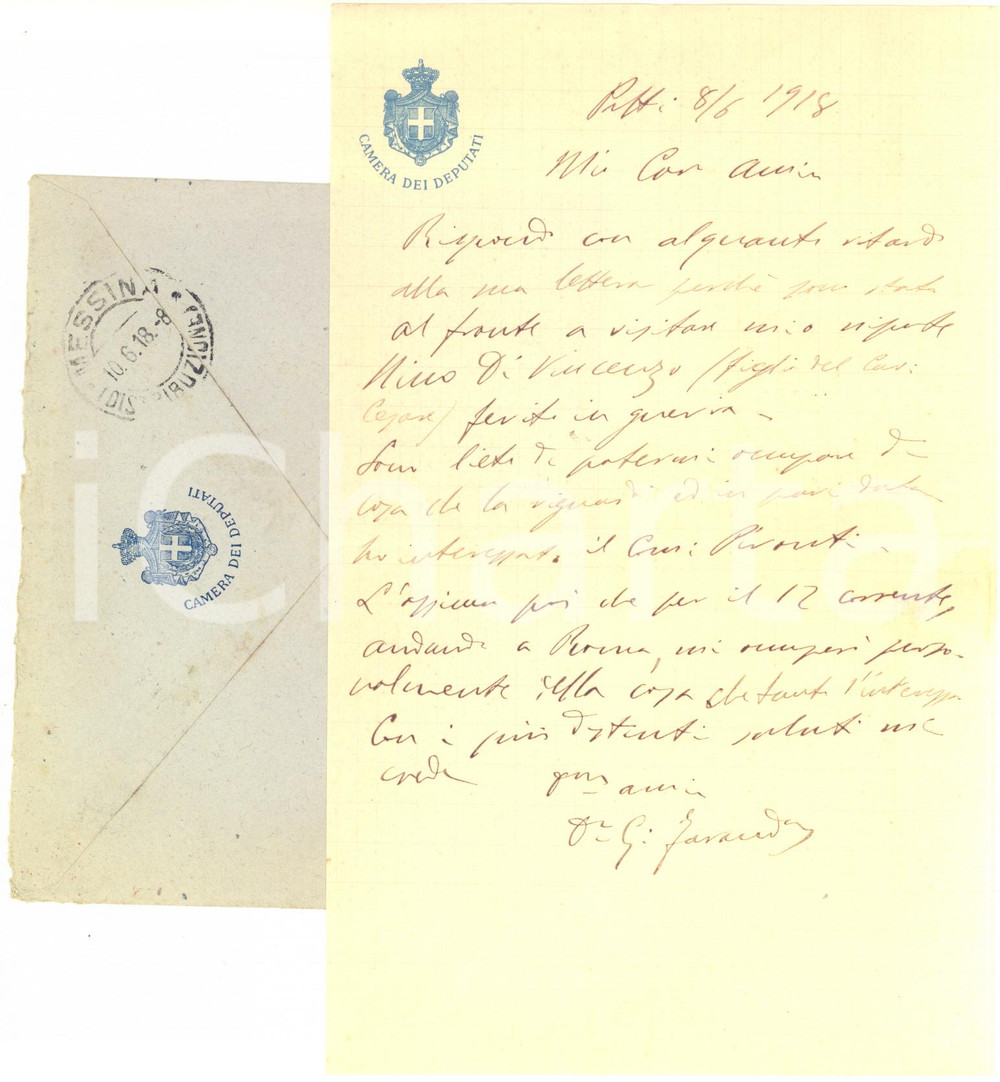 CAMERA DEI DEPUTATI
Patti 8/6 1918
Mio Caro Amico
Rispondo con alquanto ritardo
alla sua lettera perchè sono stato
al fronte a visitare mio nipote
Nino Di Vincenzo (figlio del Cav:
Cesare) ferito in guerra -
Sono lieto di potermi occupare di
cosa che la riguardi ed in pari data
ho interessato il Pironti -
L'assicuro poi che per il 12 corrente,
andando a Roma, mi occuperò perso-
nalmente della cosa che tanto l'interessa
Con i più distinti saluti mi
creda
amico
Dr G: Faranda
MESSINA (DISTRIBUZIONE)
10.6.18.-8
CAMERA DEI DEPUTATI
iCharta